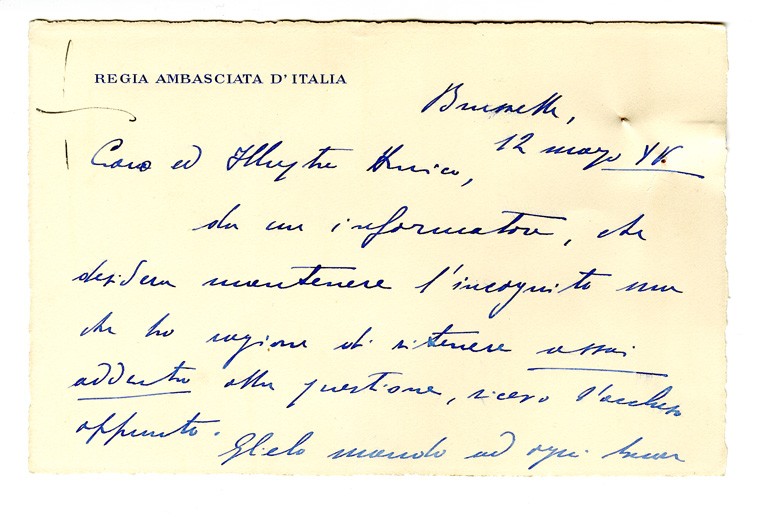 REGIA AMBASCIATA D'ITALIA
Bruxelles,
12 marzo XV.
Caro ed Illustre Amico,
da un informatore, che
desidera mantenere l'incognito ma
che ho ragione di ritenere assai
addentro alla questione, ricevo l'accluso
appunto.
Glielo mando ad ogni buon